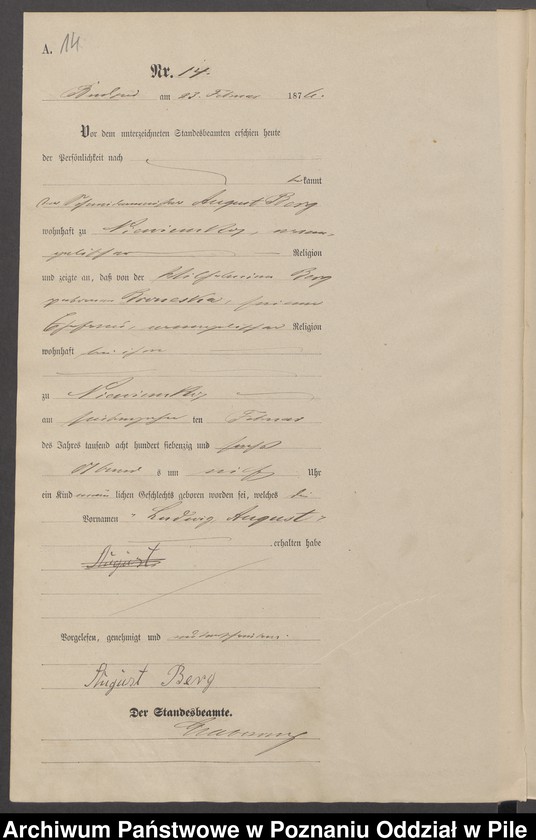 A. 14
Nr. 14.
am 23. Februar 1876.
Vor dem unterzeichneten Standesbeamten erschien heute
der Persönlichkeit nach
bekannt
der August Berg
wohnhaft zu evan-
gelischer Religion
und zeigte an, daß von der Wilhelmine Berg
geborenen seiner
Ehefrau, evangelischer Religion
wohnhaft bei ihm
zu
am siebenzehn ten Februar
des Jahres tausend acht hundert siebenzig und sechs
Abends um elf Uhr
ein Kind männlichen Geschlechts geboren worden sei, welches die
Vornamen Ludwig August
erhalten habe
August
Vorgelesen, genehmigt und unterschrieben.
August Berg
Der Standesbeamte.
Archiwum Państwowe w Poznaniu Oddział w Pile